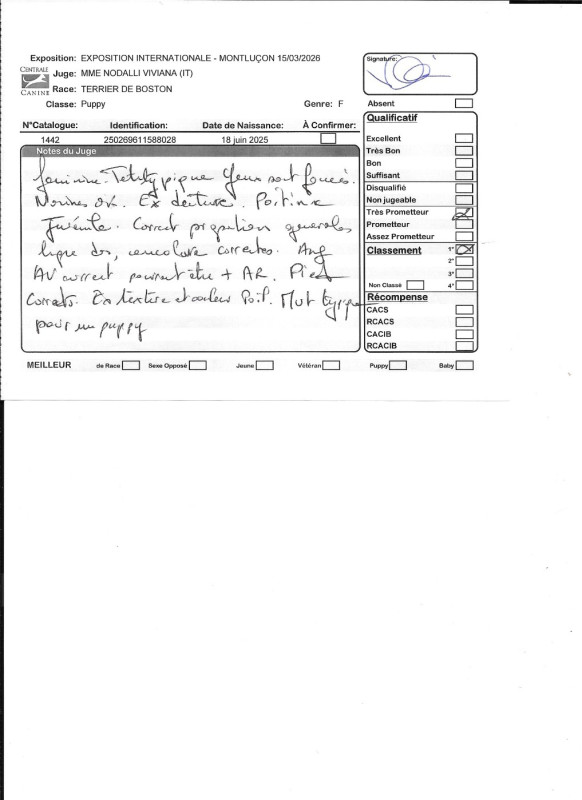 Exposition: EXPOSITION INTERNATIONALE - MONTLUÇON 15/03/2026
CENTRALE CANINE
Juge: MME NODALLI VIVIANA (IT)
Race: TERRIER DE BOSTON
Classe: Puppy Genre: F
Signature:
N°Catalogue: Identification: Date de Naissance: À Confirmer:
1442 250269611588028 18 juin 2025
Notes du Juge
feminine. Tete typique yeux sont foncés.
Narines ok. Ex denture. Poitrine
Juvénile. Correct proportion generales
ligne dos, encolure correctes. Ang
AV correct pourrait être + AR. Pied
Corrects. Ex texture et couleur Poil. Mvt typique
pour un puppy
Absent
Qualificatif
Excellent
Très Bon
Bon
Suffisant
Disqualifié
Non jugeable
Très Prometteur
Prometteur
Assez Prometteur
Classement 1°
2°
3°
Non Classé 4°
Récompense
CACS
RCACS
CACIB
RCACIB
MEILLEUR de Race Sexe Opposé Jeune Vétéran Puppy Baby